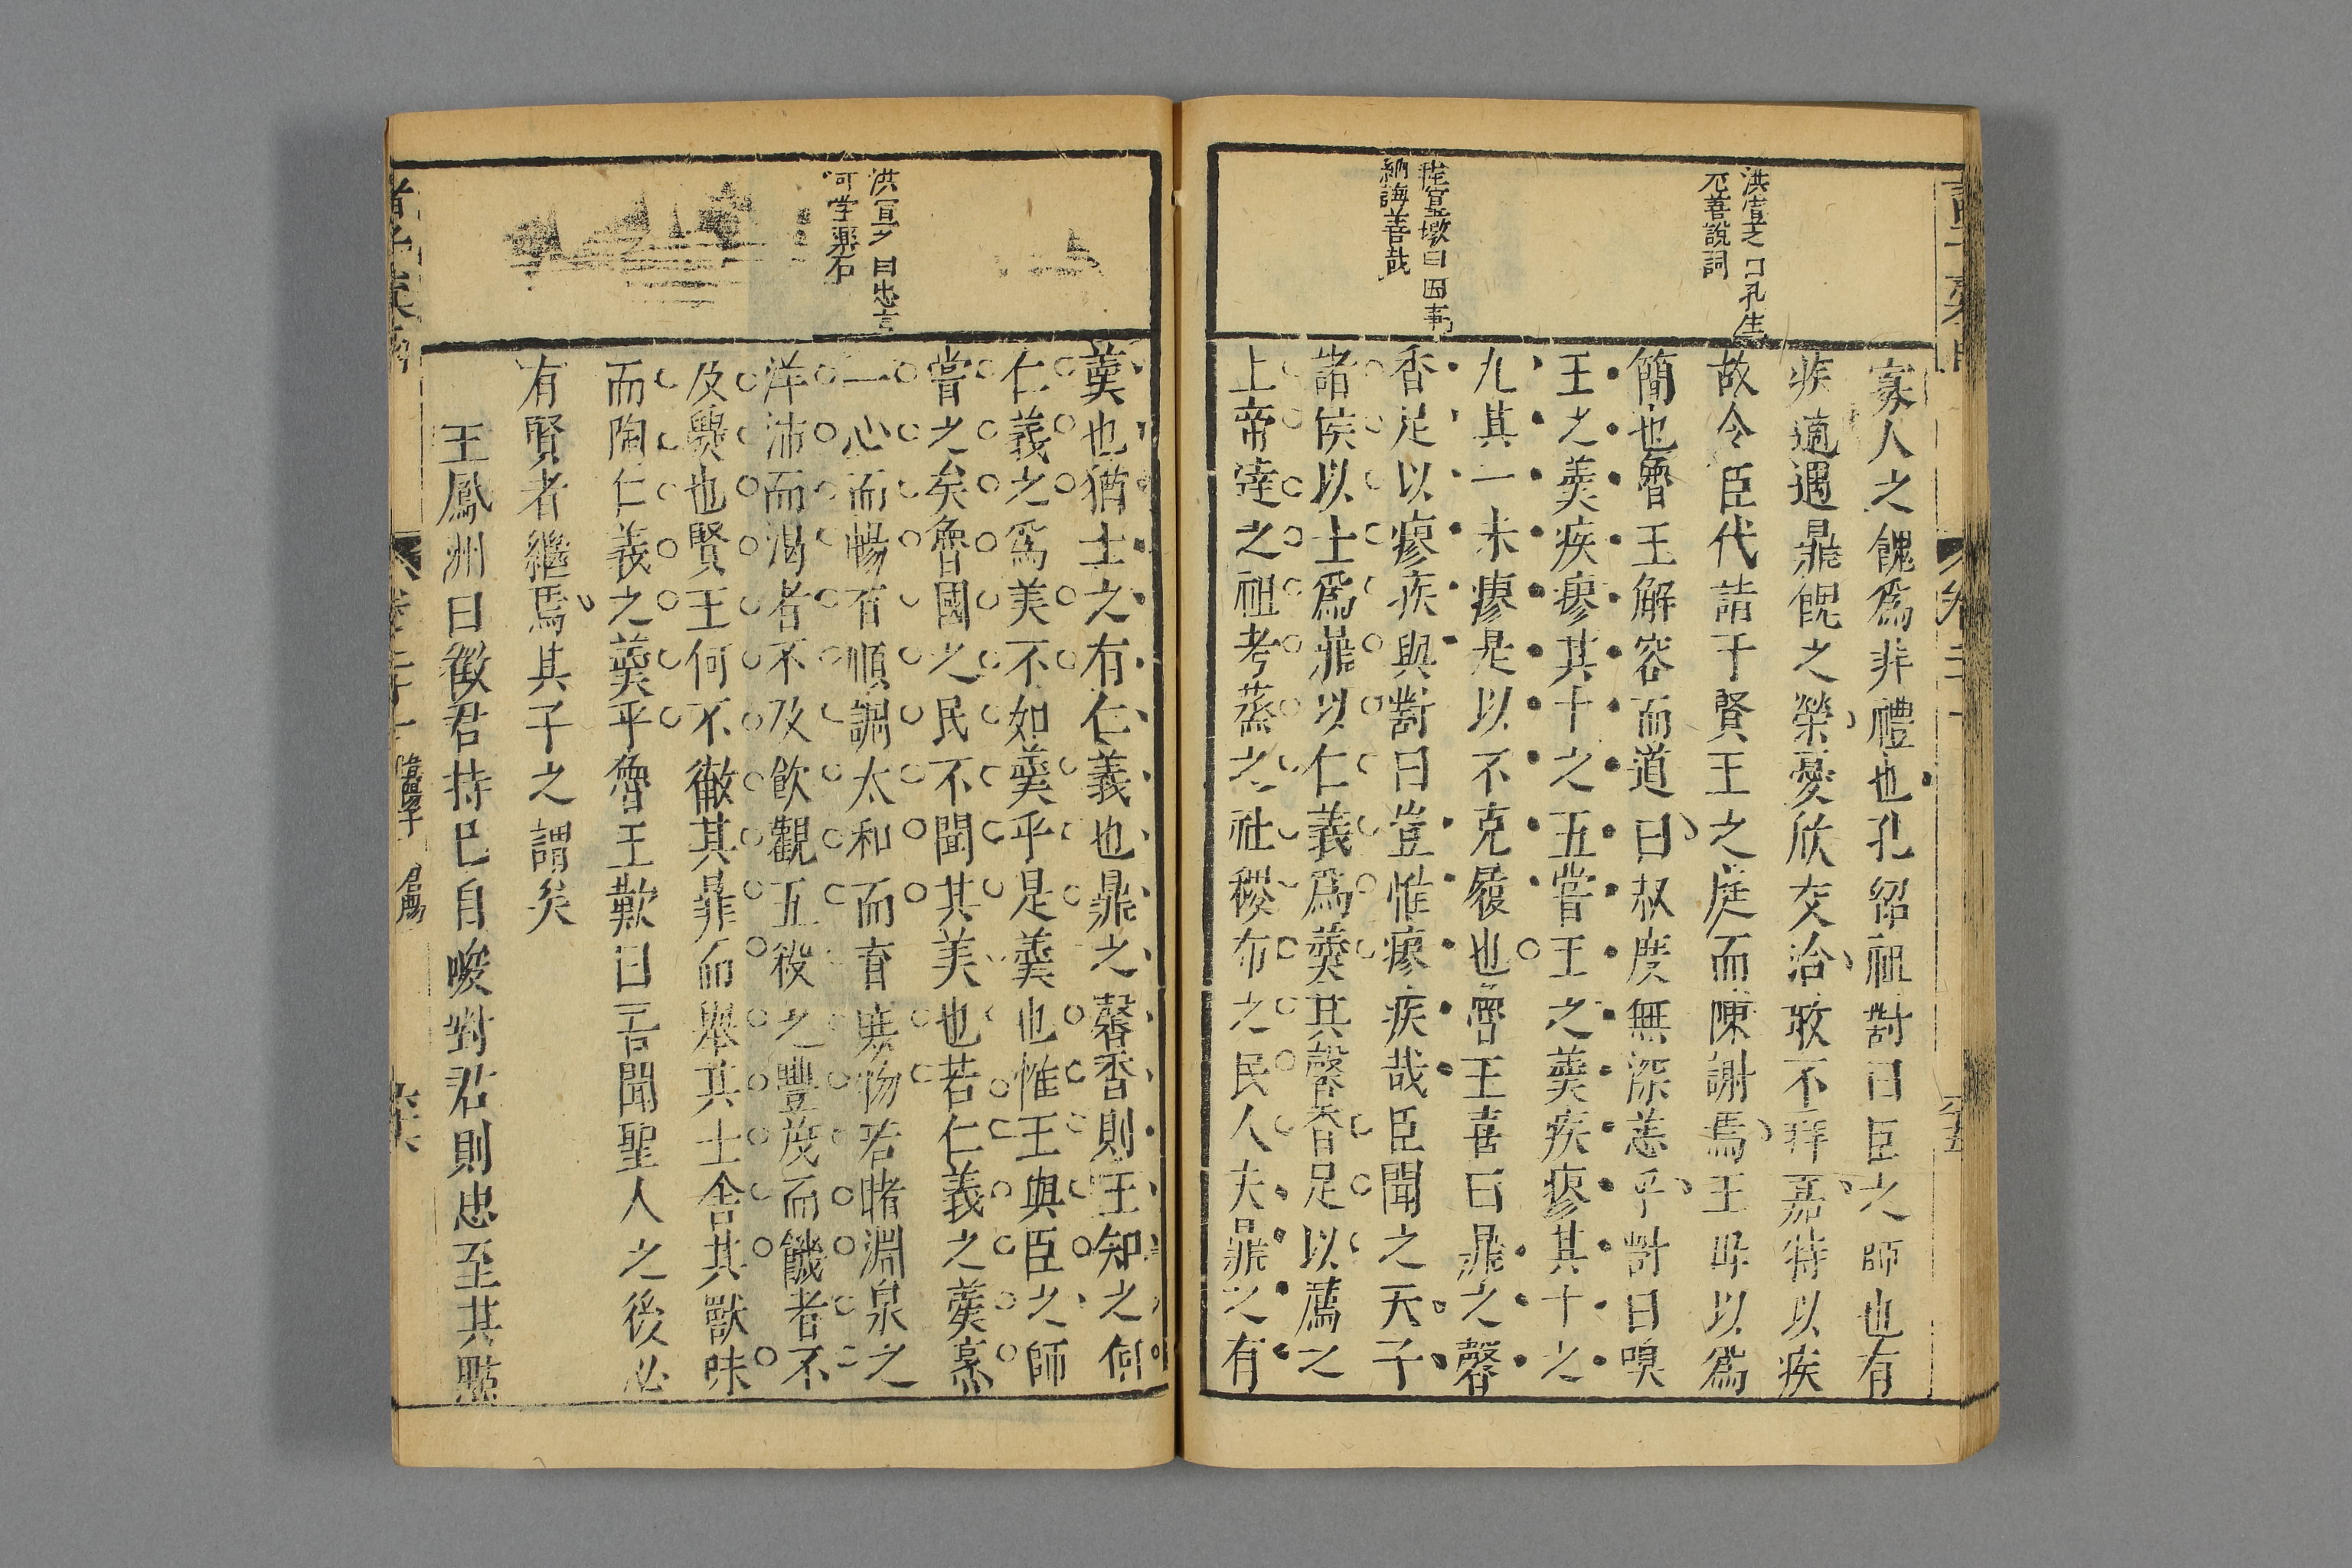 洪宣之曰孔生
兀善說詞
宣墩曰因事
納誨善哉
寡人之餽爲非禮也孔紹祖對曰臣之師也有
疾適遇鼎餽之榮憂欣交洽敢不拜嘉特以疾
故令臣代詣于賢王之庭而陳謝焉王毋以爲
簡也魯王解容而道曰叔度無深恙乎對曰嗅
王之羹疾瘳其十之五嘗王之羹疾瘳其十之
九其一未瘳是以不克屨也魯王喜曰鼎之馨
香足以瘳疾與對曰豈惟瘳疾哉臣聞之天子
諸侯以士爲鼎以仁義爲羹其馨香足以薦之
上帝達之祖考蒸之社稷布之民人夫鼎之有
洪宣之曰忠言
可當藥石
羹也猶士之有仁義也鼎之馨香則王知之何
仁義之爲美不如羹乎是羹也惟王與臣之師
嘗之矣魯國之民不聞其美也若仁義之羹烹
一心而暢百順調太和而育寒物若睹淵泉之
洋沛而渴者不及飲觀五稼之豐茂而饑者不
及爨也賢王何不徹其鼎而舉其士舍其獸味
而陶仁義之羹乎魯王歎曰吾聞聖人之後必
有賢者繼焉其子之謂矣
王鳳洲曰徵君持已自峻對君則忠至其點